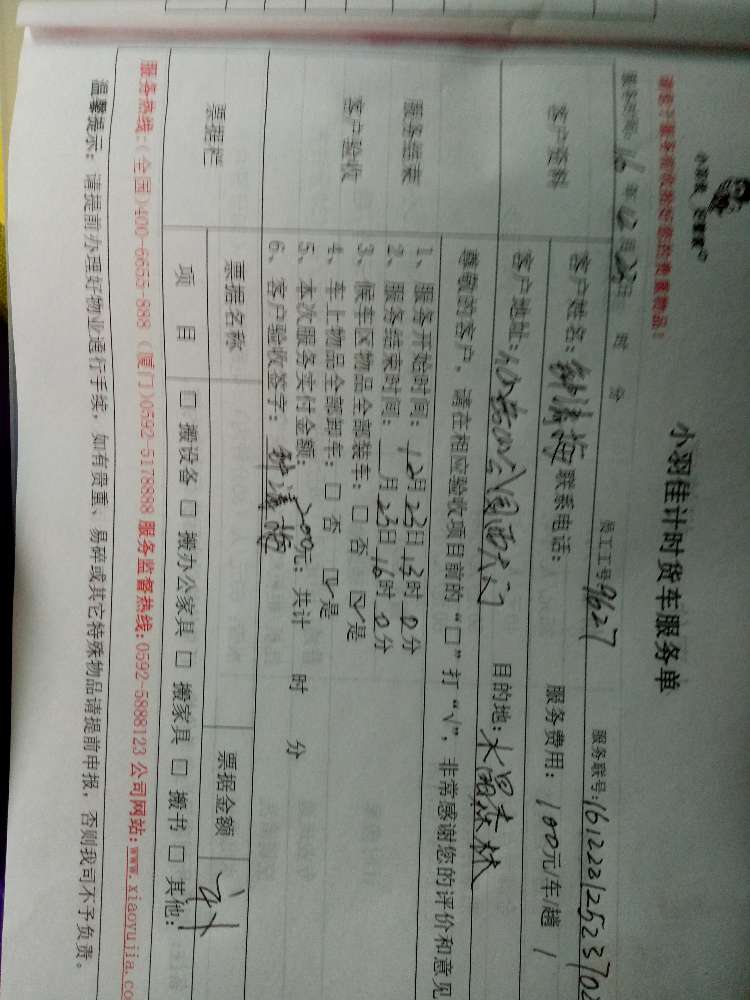 小羽佳计时货车服务单
员工工号:9627 服务联号:16122312523702
16年12月23日 时 分
客户资料
客户姓名: 联系电话: 服务费用:100元/车/趟
客户地址: 公园西大门 目的地:水晶森林
尊敬的客户,请在相应验收项目前的“口”打“√”,非常感谢您的评价和意见
服务结束
客户验收
1、服务开始时间:12月23日13时0分
2、服务结束时间: 月23日16时0分
3、候车区物品全部装车:□ 否 ☑是
4、车上物品全部卸车:□ 否 ☑是
5、本次服务实付金额:200元;共计 时 分
6、客户验收签字:
票据栏 票据名称 票据金额
项 目 □ 搬设备 □ 搬办公家具 □ 搬家具 □ 搬书 □ 其他:
服务热线:(全国)400-6655-888 (厦门)0592-5178888 服务监督热线:0592-5888123 公司网站:www.xiaoyujia.co
温馨提示:请提前办理好物业通行手续,如有贵重、易碎或其它特殊物品请提前申报,否则我司不予负责。